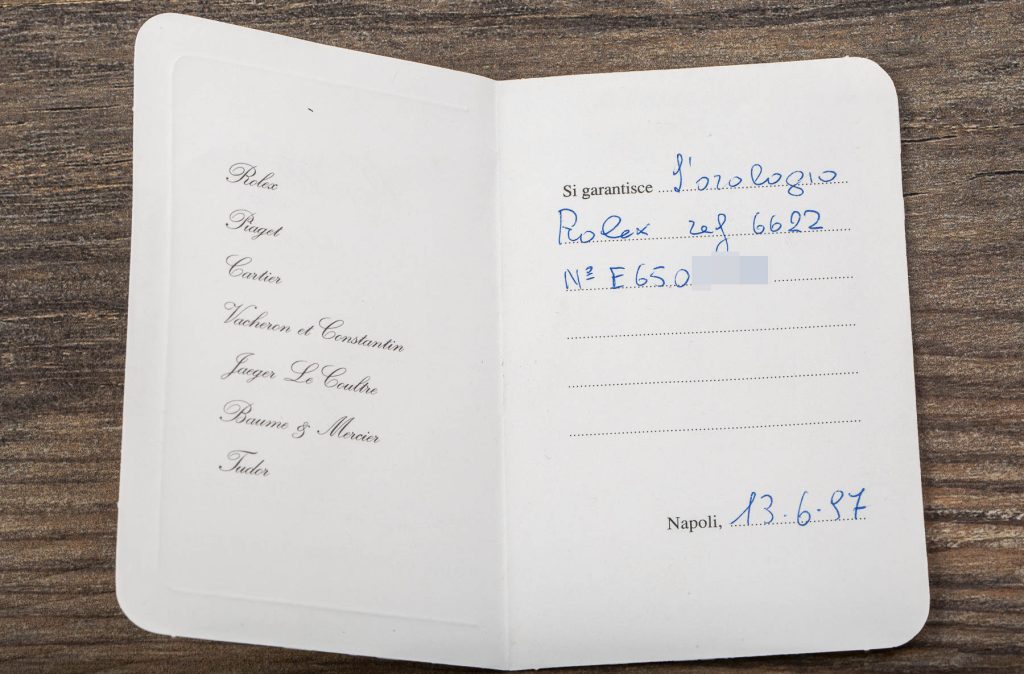 Rolex
Piaget
Cartier
Vacheron et Constantin
Jaeger Le Coultre
Baume & Mercier
Tudor
Si garantisce l'orologio
Rolex ref 6622
Nº E650
Napoli, 13.6.97